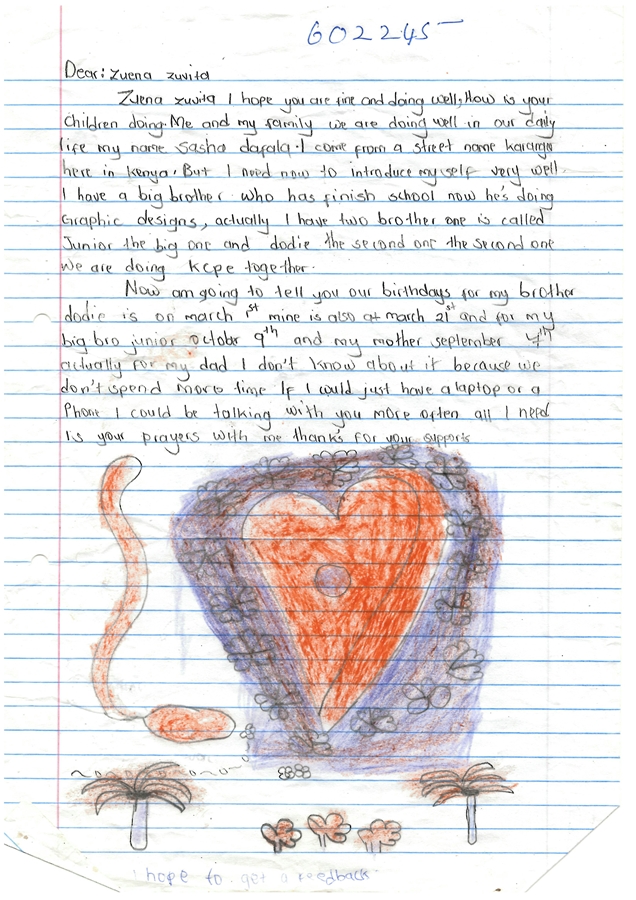 602245
Dear: Zuena zuvita
Zuena zuvita I hope you are fine and doing well, How is your
Children doing. Me and my family we are doing well in our daily
life my name Sasha dafala. I come from a street name
here in Kenya. But I need now to introduce myself very well
I have a big brother who has finish school now he's doing
Graphic designs, actually I have two brother one is called
Junior the big one and dodie the second one the second one
we are doing kcpe together.
Now am going to tell you our birthdays for my brother
dodie is on march 1st mine is also at march 21st and for my
big bro junior october 9th and my mother september 7th
actually for my dad I don't know about it because we
don't spend more time If I could just have a laptop or a
Phone I could be talking with you more often all I need
Is your prayers with me thanks for your supports
I hope to get a feedback.